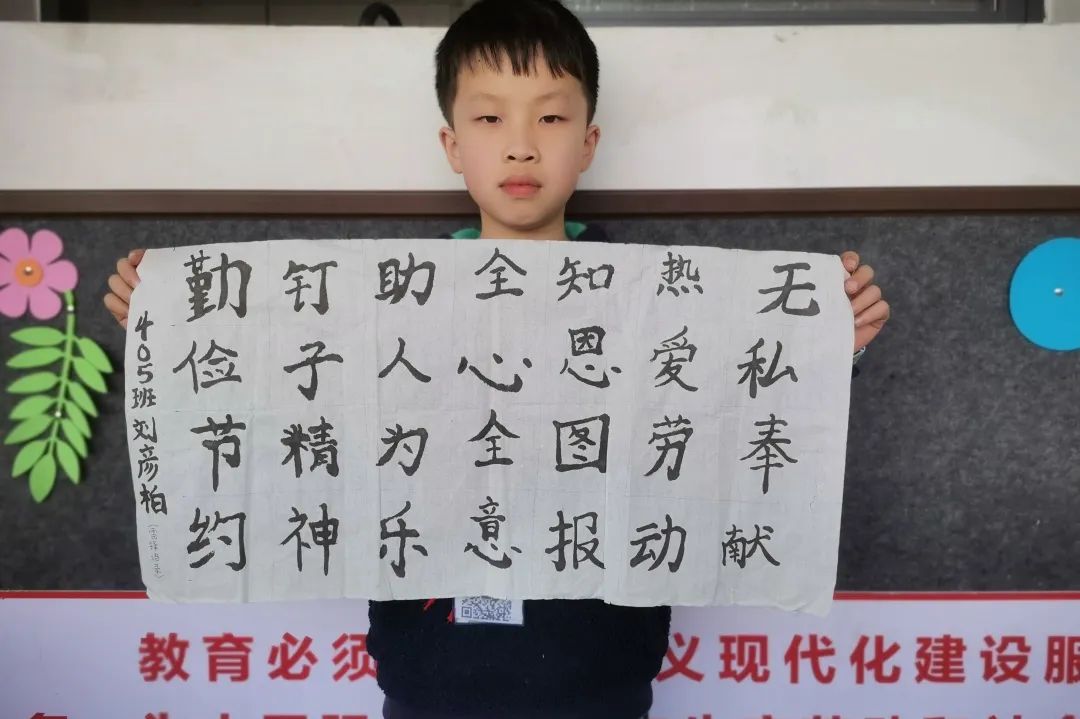 无私奉献
热爱劳动
知恩图报
全心全意
助人为乐
钉子精神
勤俭节约
405班刘彦柏
教育必须
义现代化建设服